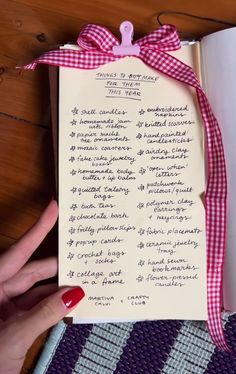 THINGS TO BUY MAKE
FOR THEM
THIS YEAR
* shell candles
* homemade jam
with ribbon
* papier mache
tree ornaments
* mosaic coasters
* fake cake jewelry
boxes
* homemade body
butter + lip balm
* quilted toiletry
bags
* bath teas
* chocolate bark
* frilly pillows
* popup cards
* crochet bags
+ scarves
* collage art in
a frame
* embroidered
napkins
* knitted scarves
* hand painted
candlesticks
* airdry clay
ornaments
* 'open when'
letters
* patchwork
pillows/quilt
* polymer clay
earrings
+ keyrings
* fabric placemats
* ceramic jewelry
tray
* hand sewn
bookmarks
* flower-pressed
candles
MARTINA CALVI
x
CRAFTY CLUB